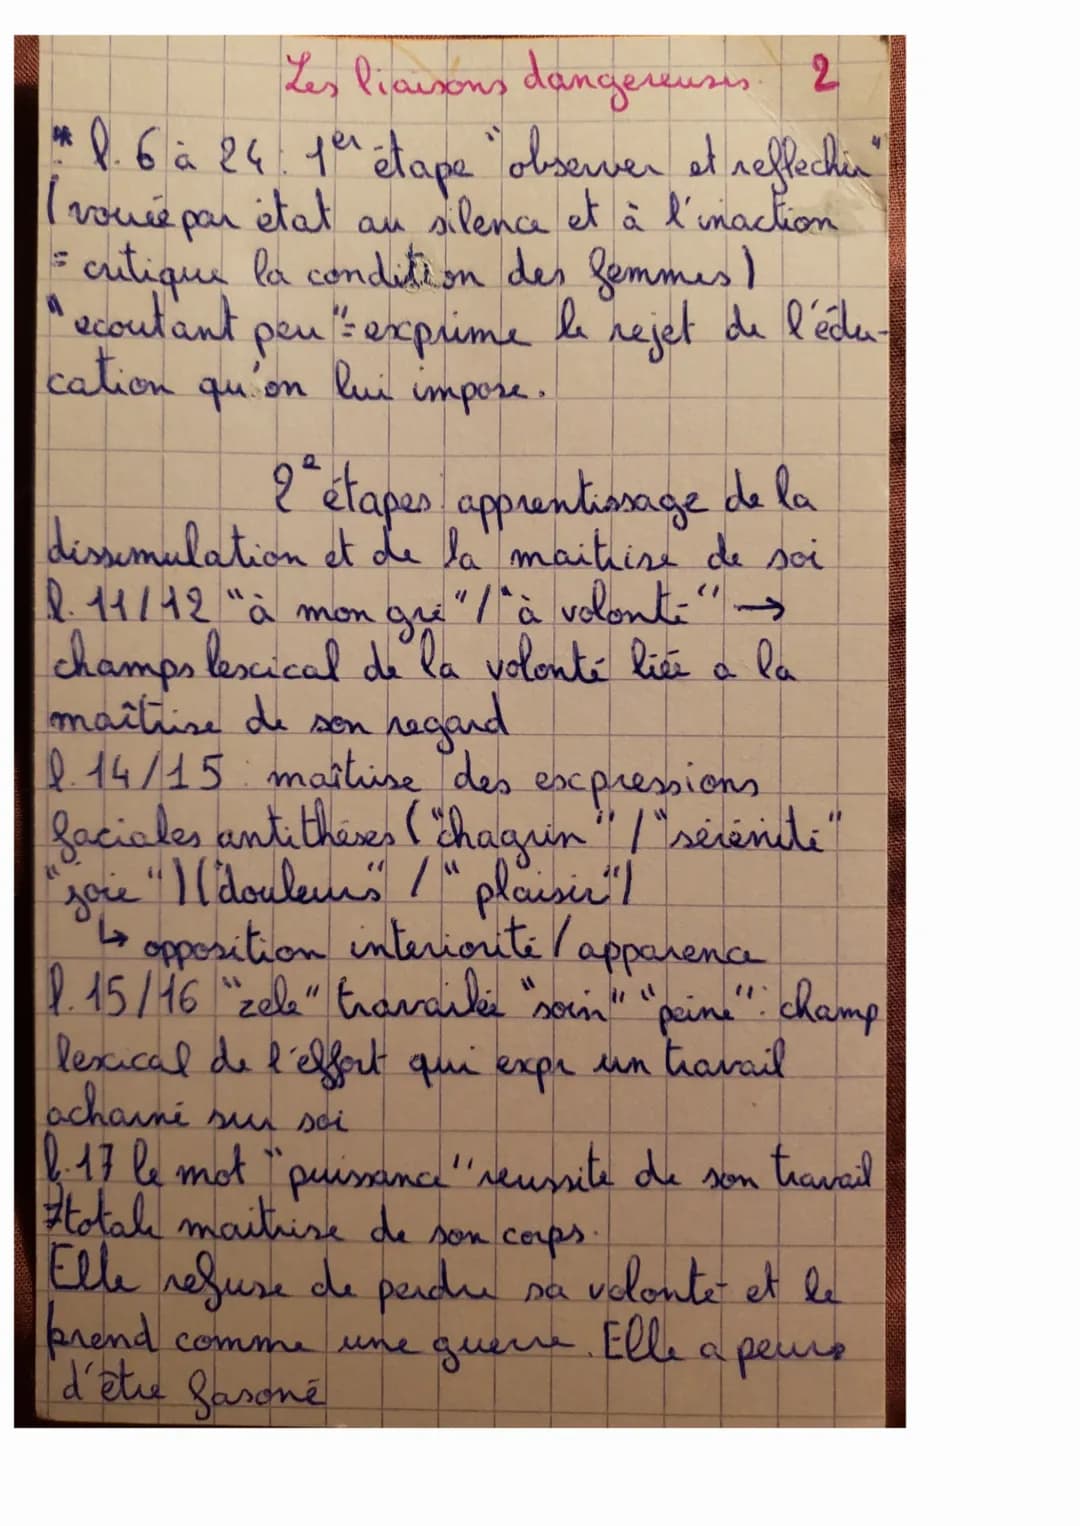 Les liaisons dangereuses. 2
* l. 6 à 24 : 1er étape "observer et reflechir"
(vouée par état au silence et à l'inaction
= critique la condition des femmes)
"ecoutant peu" = exprime le rejet de l'édu-
cation qu'on lui impose.
2e étapes apprentissage de la
dissimulation et de la maitrise de soi
l. 11/12 "à mon gré" / "à volonté" →
champs lescical de la volonté liée a la
maîtrise de son regard
l. 14/15 : maîtrise des escpressions
faciales antithéses ("chagrin" / "sérénité"
"joie") ("douleurs" / "plaisir")
↳ opposition interiorité / apparence
l. 15/16 "zele" travailée "soin" "peine" : champ
lexical de l'effort qui expr un travail
acharné sur soi
l. 17 le mot "puissance" reussite de son travail
≠ totale maitrise de son corps.
Elle refuse de perdre sa volonté et le
prend comme une guerre. Elle a peur
d'être fasoné